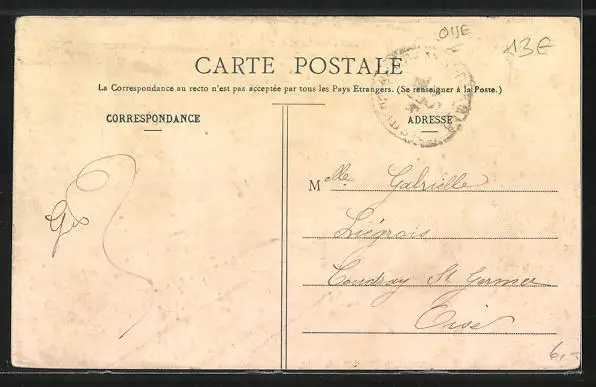 OISE
13€
CARTE POSTALE
La Correspondance au recto n'est pas acceptée par tous les Pays Etrangers. (Se renseigner à la Poste.)
CORRESPONDANCE
ADRESSE
Mlle Gabrielle
Liégeois
Coudray St Germer
Oise
6,-